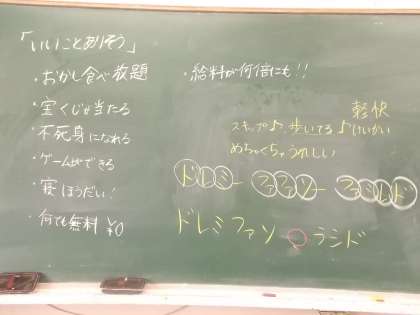 「いいことありそう」
・おかし食べ放題
・宝くじが当たる
・不死身になれる
・ゲームができる
・寝ほうだい!
・何でも無料 ¥0
・給料が何倍にも!!
軽快
スキップ♪、歩いてる♪けいかい
めちゃくちゃうれしい
ドレミー ファファソー ファミレド
ドレミファソ○ラシド